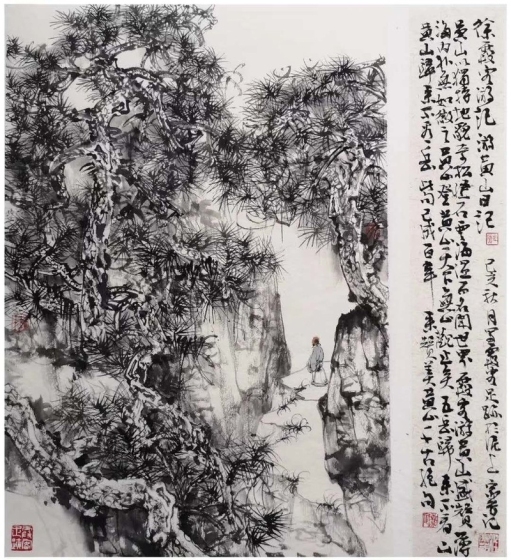 徐霞客游记 游黄山日记 己亥秋月写霞客足迹于沪上 记
黄山以独特地貌奇松怪石云海温泉名闻世界 霞客游黄山盛赞薄
海内外无如徽之黄山登黄山天下无山观止矣五岳归来不看山
黄山归来不看岳 此句已成百年来赞美黄山千古绝句